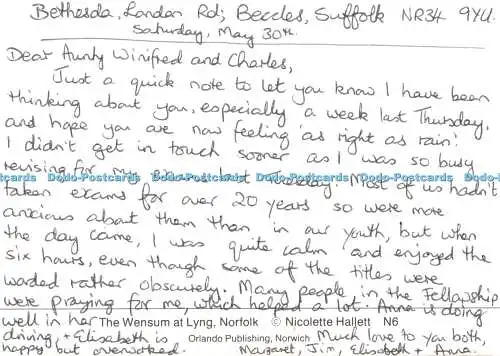 Bethesda, London Rd; Beccles, Suffolk NR34 9YU.
Saturday, May 30th.
Dear Aunty Winifred and Charles,
Just a quick note to let you know I have been
thinking about you, especially a week last Thursday,
and hope you are now feeling 'as right as rain'.
I didn't get in touch sooner as I was so busy
revising for my exams last Tuesday. Most of us hadn't
Dodo-Postcards Dodo-Postcards Dodo-Postcards Dodo-Postcards
taken exams for over 20 years so were more
anxious about them than in our youth, but when
the day came, I was quite calm and enjoyed the
six hours, even though some of the titles were
worded rather obscurely. Many people in the Fellowship
were praying for me, which helped a lot. Anna is doing
well in her
The Wensum at Lyng, Norfolk © Nicolette Hallett N6
driving, + Elisabeth is
Orlando Publishing, Norwich
Much love to you both,
happy but overworked.
Margaret, Jim, Elisabeth + Anna.